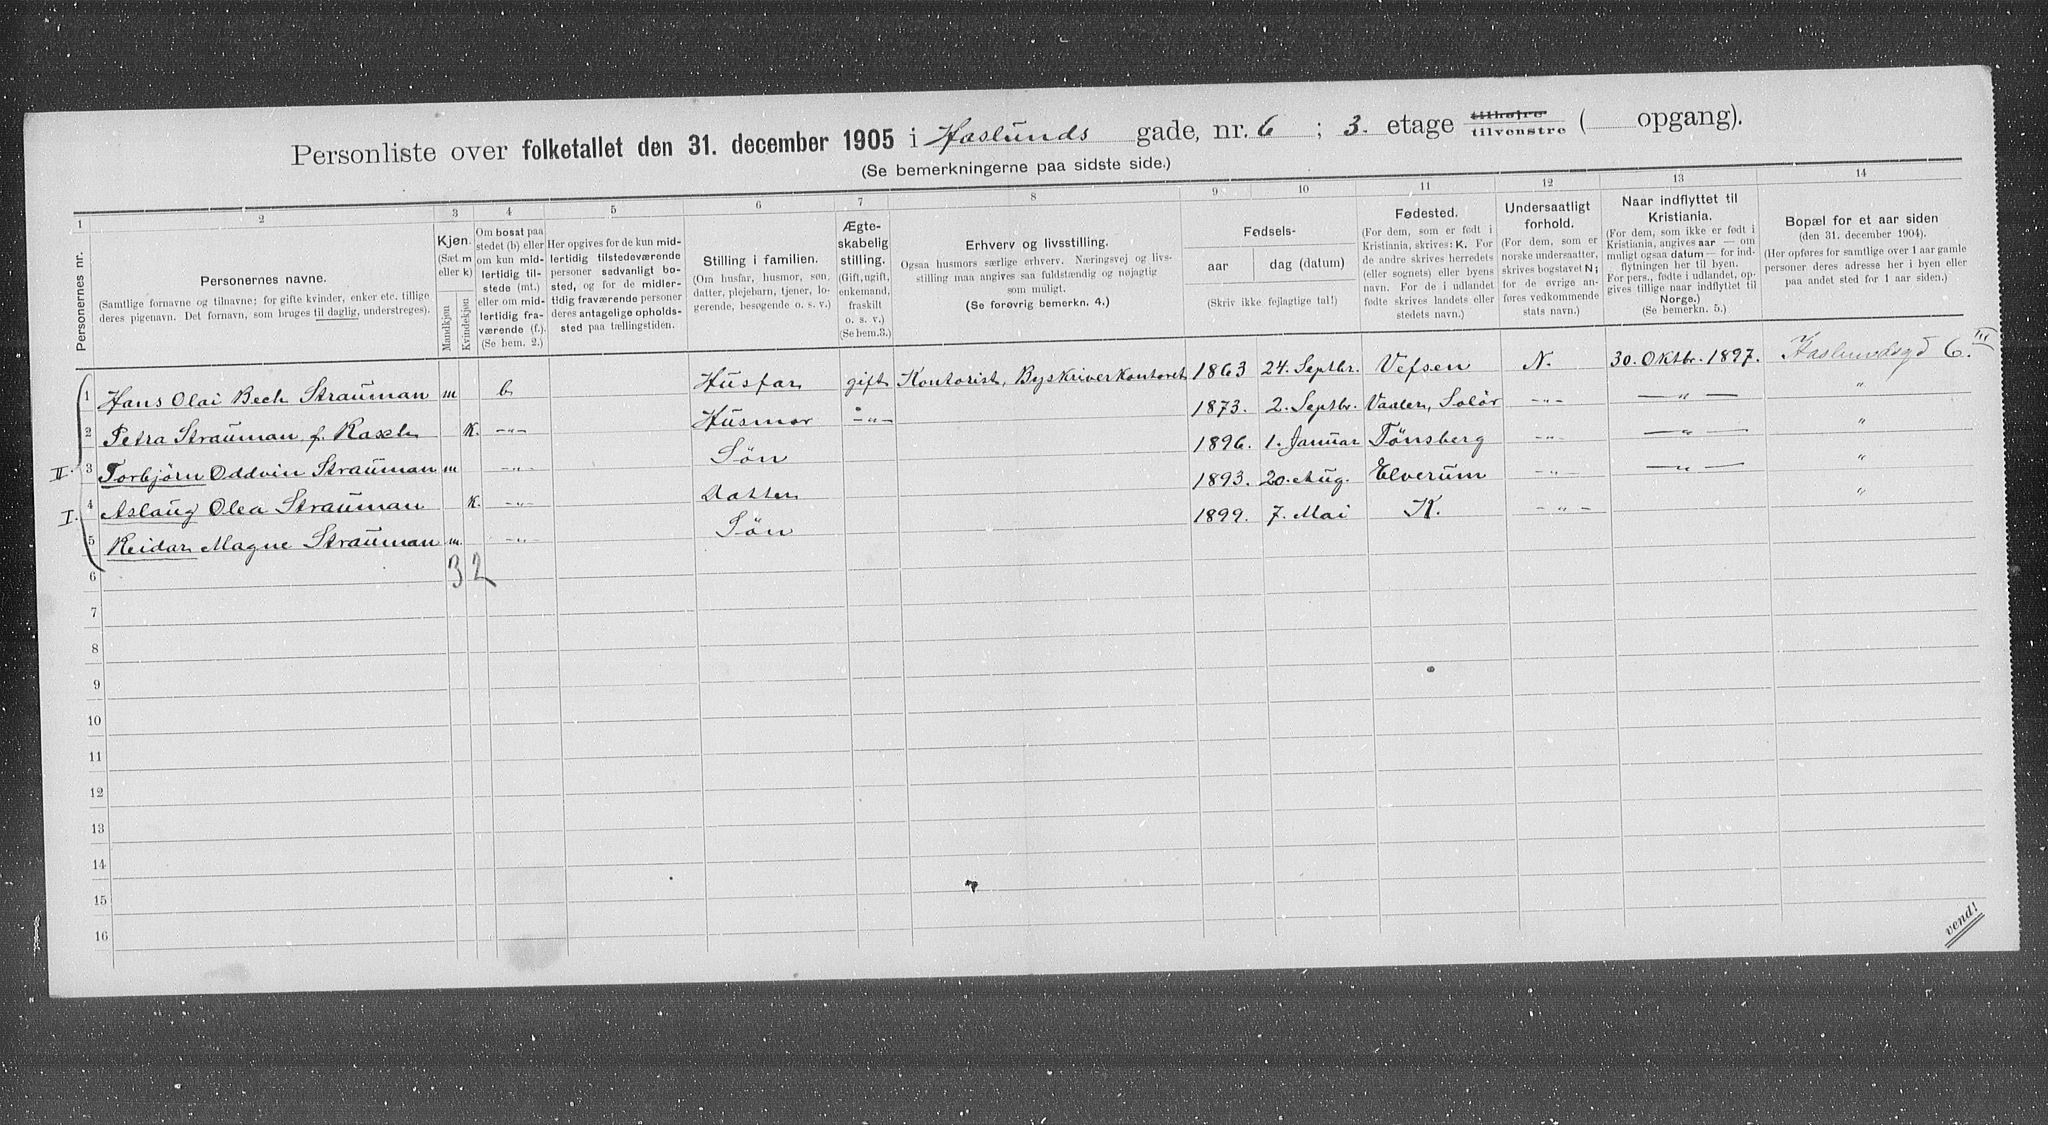 Personliste over folketallet den 31. december 1905 i Haslunds gade, nr. 6 ; 3. etage tilhøjre tilvenstre ( opgang).
(Se bemerkningerne paa sidste side.)
1 2 3 4 5 6 7 8 9 10 11 12 13 14
Personernes nr.
Personernes navne.
(Samtlige fornavne og tilnavne; for gifte kvinder, enker etc. tillige
deres pigenavn. Det fornavn, som bruges til daglig, understreges).
Kjøn.
(Sæt m
eller k)
Mandkjøn
Kvindekjøn
Om bosat paa
stedet (b) eller
om kun mid-
lertidig til-
stede (mt.)
eller om mid-
lertidig fra-
værende (f.).
(Se bem. 2.)
Her opgives for de kun mid-
lertidig tilstedeværende
personer sædvanligt bo-
sted, og for de midler-
tidig fraværende personer
deres antagelige opholds-
sted paa tællingstiden.
Stilling i familien.
(Om husfar, husmor, søn,
datter, plejebarn, tjener, lo-
gerende, besøgende o. s. v.)
Ægte-
skabelig
stilling.
(Gift, ugift,
enkemand,
fraskilt
o. s. v.)
(Se bem.3.)
Erhverv og livsstilling.
Ogsaa husmors særlige erhverv. Næringsvej og livs-
stilling maa angives saa fuldstændig og nøjagtig
som muligt.
(Se forøvrig bemerkn. 4.)
Fødsels-
aar
dag (datum)
(Skriv ikke fejlagtige tal!)
Fødested.
(For dem, som er født i
Kristiania, skrives: K. For
de andre skrives herredets
(eller sognets) eller byens
navn. For de i udlandet
fødte skrives landets eller
stedets navn.)
Undersaatligt
forhold.
(For dem, som er
norske undersaatter,
skrives bogstavet N;
for de øvrige an-
føres vedkommende
stats navn.)
Naar indflyttet til
Kristiania.
(For dem, som ikke er født i
Kristiania, angives aar — om
muligt ogsaa datum — for ind-
flytningen her til byen.
For pers., født i udlandet, op-
gives tillige naar indflyttet til
Norge.)
(Se bemerkn. 5.)
Bopæl for et aar siden
(den 31. december 1904).
(Her opføres for samtlige over 1 aar gamle
personer deres adresse her i byen eller
paa andet sted for 1 aar siden.)
1 Hans Olai Bech Strauman m b Husfar gift Kontorist, Byskriverkontoret 1863 24. Septbr. Vefsen N. 30. Oktbr. 1897. Haslundsgd 6. III
2 Petra Strauman f. Rasch K. -„- Husmor -„- 1873. 2. Septbr. Vaaler, Solør -„- — „ — „
II. 3 Torbjørn Oddvin Strauman m -„- Søn 1896. 1. Januar Tønsberg -„- — „ — „
I. 4 Aslaug Olea Strauman K. -„- Datter 1893. 20. Aug. Elverum -„- — „ — „
5 Reidar Magne Strauman m. -„- Søn 1899. 7. Mai K. - „ - „
6 3 2
7
8
9
10
11
12
13
14
15
16
vend!